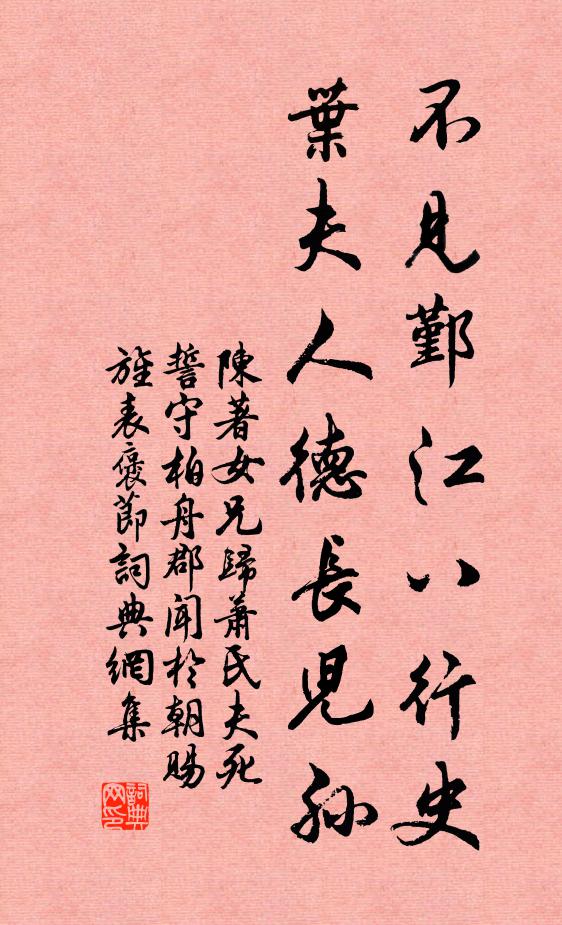 不見鄞江八行史
葉夫人德長兒孫
陳著女兄歸蕭氏夫死
誓守柏舟郡聞於朝賜
旌表褒節詞典網集
詞典
网印